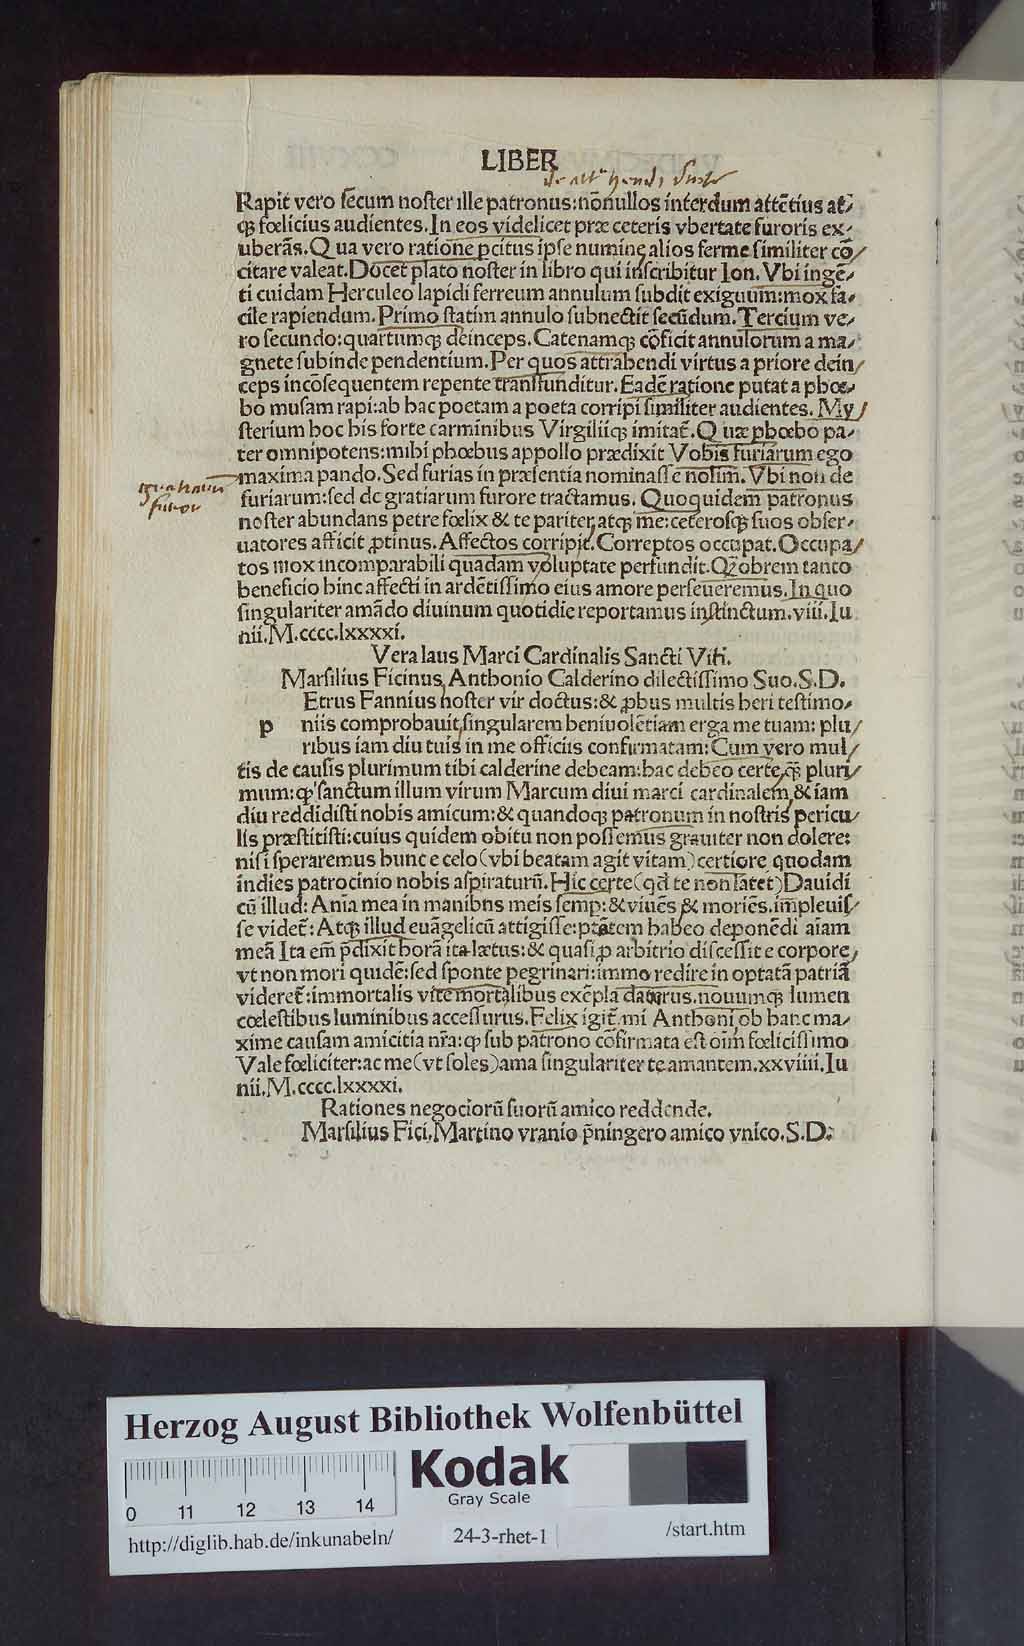 LIBER
Rapit vero secum noster ille patronus:nõnullos interdum attẽtius at⸗
qꝫ fœlicius audientes.In eos videlicet præ ceteris vbertate furoris ex⸗
uberãs.Qua vero ratione ꝑcitus ipse numine alios ferme similiter cõ/
citare valeat.Docet plato noster in libro qui inscribitur Ion.Vbi ingẽ⸗
ti cuidam Herculeo lapidi ferreum annulum subdit exiguum:mox fa⸗
cile rapiendum.Primo statim annulo subnectit secũdum.Tercium ve⸗
ro secundo:quartumqꝫ deinceps.Catenamqꝫ cõficit annulorum a ma⸗
gnete subinde pendentium.Per quos attrahendi virtus a priore dein/
ceps incõsequentem repente transfunditur.Eadẽ ratione putat a phœ⸗
bo musam rapi:ab hac poetam a poeta corripi similiter audientes. My/
sterium hoc his forte carminibus Virgiliiqꝫ imitat̃.Quæ phœbo pa⸗
ter omnipotens:mihi phœbus appollo prædixit Vobis furiarum ego
maxima pando.Sed furias in præsentia nominasse nolim.Vbi non de
furiarum:sed de gratiarum furore tractamus.Quoquidem patronus
furor
noster abundans petre fœlix & te pariter,atqꝫ me:ceterosqꝫ suos obser⸗
uatores afficit ꝓtinus.Affectos corripit.Correptos occupat.Occupa/
tos mox incomparabili quadam voluptate perfundit.Qꝫobrem tanto
beneficio hinc affecti in ardẽtissimo eius amore perseueremus.In quo
singulariter amãdo diuinum quotidie reportamus instinctum.viii.Iu
nii.M.cccc.lxxxxi.
Vera laus Marci Cardinalis Sancti Viti.
Marsilius Ficinus Anthonio Calderino dilectissimo Suo.S.D.
Etrus Fannius noster vir doctus:& ꝓbus multis heri testimo⸗
p niis comprobauit,singularem beniuolẽtiam erga me tuam: plu/
ribus iam diu tuis in me officiis confirmatam:Cum vero mul/
tis de causis plurimum tibi calderine debeam:hac debeo certe,qꝫ pluri/
mum:ꝙ sanctum illum virum Marcum diui marci cardinalem,& iam
diu reddidisti nobis amicum:& quandoqꝫ patronum in nostris pericu/
lis præstitisti:cuius quidem obitu non possemus grauiter non dolere:
nisi speraremus hunc e celo(vbi beatam agit vitam)certiore quodam
indies patrocinio nobis aspiraturũ.Hic certe(qd̃ te non latet)Dauidi
cũ illud:Anĩa mea in manibns meis semp:& viuẽs & moriẽs.im̃pleuis/
se videt̃:Atqꝫ illud euãgelicũ attigisse:ptãtem habeo deponẽdi aĩam
meã Ita em̃ p̃dixit horã ita lætus:& quasi ꝓ arbitrio discessit e corpore,
vt non mori quidẽ:sed sponte pegrinari:immo redire in optatã patriã
videret̃:immortalis vite mortalibus exẽpla daturus.nouumqꝫ lumen
cœlestibus luminibus accessurus.Felix igit̃ mi Anthoni,ob hanc ma⸗
xime causam amicitia nr̃a:ꝙ sub patrono cõfirmata est oĩm fœlicissimo
Vale fœliciter:ac me(vt soles)ama singulariter te amantem.xxviiii.Iu
nii.M.cccc.lxxxxi.
Rationes negociorũ suorũ amico reddende.
Marsilius Fici.Martino vranio p̃ningero amico vnico.S.D.
Herzog August Bibliothek Wolfenbüttel
0 11 12 13 14
Kodak
Gray Scale
http://diglib.hab.de/inkunabeln/ 24-3-rhet-1 /start.htm